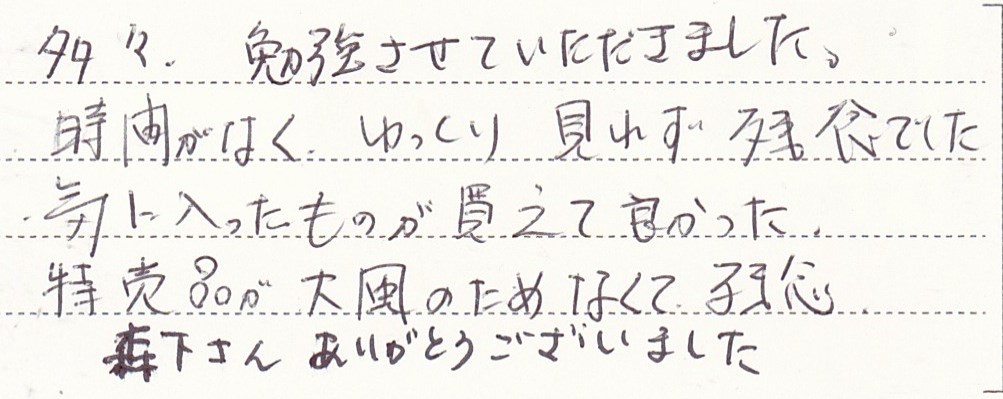 多々、勉強させていただきました。
時間がなく、ゆっくり見れず残念でした
気に入ったものが買えて良かった、
特売品が大風のためなくて残念
森下さんありがとうございました